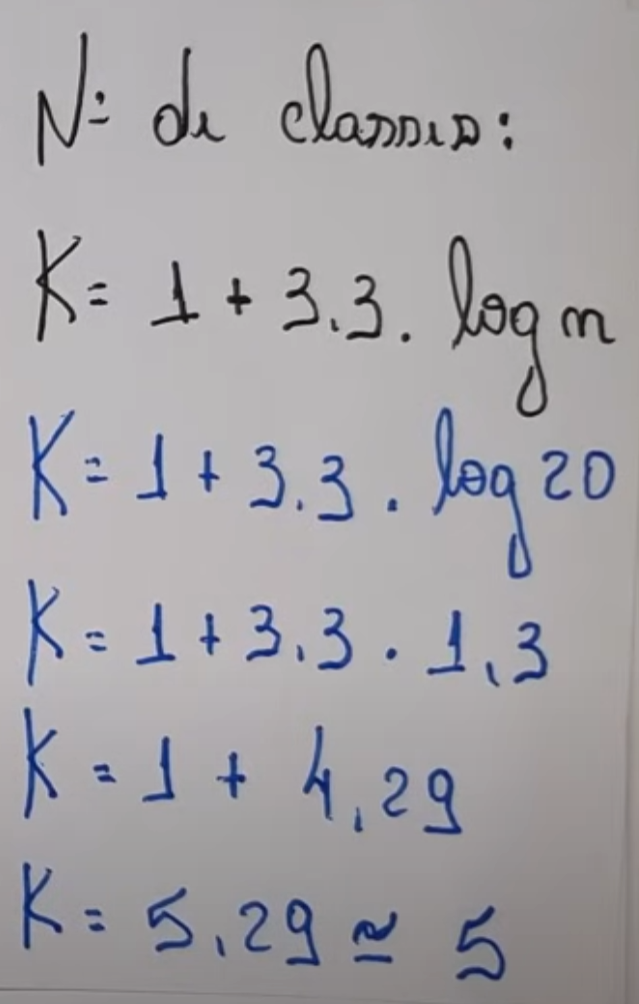 Nº de classes:
K = 1 + 3,3 . log n
K = 1 + 3,3 . log 20
K = 1 + 3,3 . 1,3
K = 1 + 4,29
K = 5,29 ≅ 5